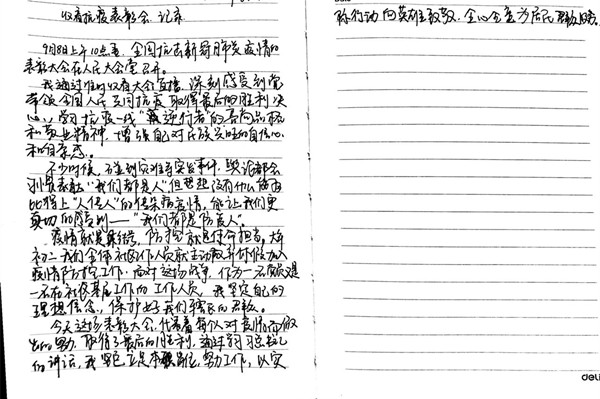 收看抗疫表彰会 记录
9月8日上午10点整, 全国抗击新冠肺炎疫情的
表彰大会在人民大会堂召开。
我通过准时收看大会直播, 深刻感受到党
带领全国人民共同抗疫取得最后的胜利决
心, 学习抗疫一线"最美逆行者"的高尚品格
和敬业精神, 增强自己对民族兴旺的自信心
和自豪感。
不少时候, 碰到灾难等突发事件, 舆论都会
表献"我们都是人"但想想没有什么能
比得上"人传人"的传染病疫情, 能让我们更
真切的感到——"我们都是防疫人"。
疫情就是集结号, 防控就是使命担当。大年
初二我们全体社区工作人员就主动取消休假加入
疫情防控工作, 面对这场战争, 作为一名
一名在社区基层工作的工作人员, 我坚定自己的
理想信念, 保护好了我们辖区的居民。
今天这场表彰大会, 代表着每个人对疫情而做
出的努力, 取得了最后的胜利, 通过学习总书记
的讲话, 我坚定立足本职岗位, 努力工作, 以实
际行动向英雄致敬, 全心全意为居民服务。
deli